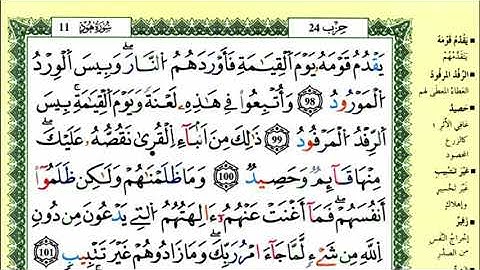 حزب 24
سورة هود 11
يَقْدُمُ قَوْمَهُ يَوْمَ اَ۬لْقِيَٰمَةِ فَأَوْرَدَهُمُ اُ۬لنَّارَۖ وَبِيسَ اَ۬لْوِرْدُ
اُ۬لْمَوْرُودُ 98 وَأُتْبِعُواْ فِے هَٰذِهِۦ لَعْنَةٗ وَيَوْمَ اَ۬لْقِيَٰمَةِۖ بِيسَ
اَ۬لرِّفْدُ اُ۬لْمَرْفُودُ 99 ذَٰلِكَ مِنَ اَنۢبَآءِ اِ۬لْقُرَىٰ نَقُصُّهُۥ عَلَيْكَۖ
مِنْهَا قَآئِمٞ وَحَصِيدٞ 100 وَمَا ظَلَمْنَٰهُمْ وَلَٰكِن ظَلَمُوٓاْ
أَنفُسَهُمْ فَمَآ أَغْنَتْ عَنْهُمُۥٓ ءَالِهَتُهُمُ اُ۬لتِے يَدْعُونَ مِن دُونِ
اِ۬للَّهِ مِن شَےْءٖ لَّمَّا جَآءَ امْرُ رَبِّكَۖ وَمَا زَادُوهُمْ غَيْرَ تَتْبِيبٖ 101
يَقْدُمُ قَوْمَهُ
يَتَقَدَّمُهُمْ
الرِّفْدُ المَرْفُودُ
العَطَاءُ المُعْطَى لَهُمْ
حَصِيدٌ
عَافِي الأَثَرِ
كالزَّرْعِ
المَحْصُودِ
غَيْرَ تَتْبِيبٍ
غَيْرَ تَخْسِيرٍ
وَإِهْلَاكٍ
زَفِيرٌ
إِخْرَاجُ النَّفَسِ
مِنَ الصَّدْرِ